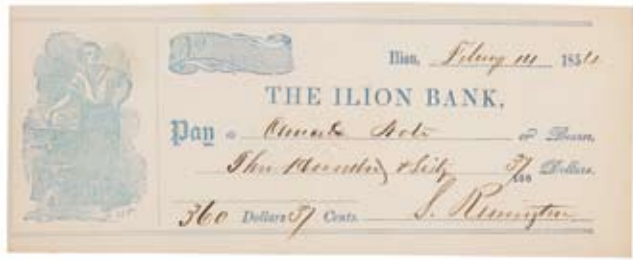 Ilion, Feb'y 14 185
THE ILION BANK,
Pay to Note or Bearer,
Three Hundred & Sixty 37/100 Dollars.
360 Dollars 37 Cents. S. Remington